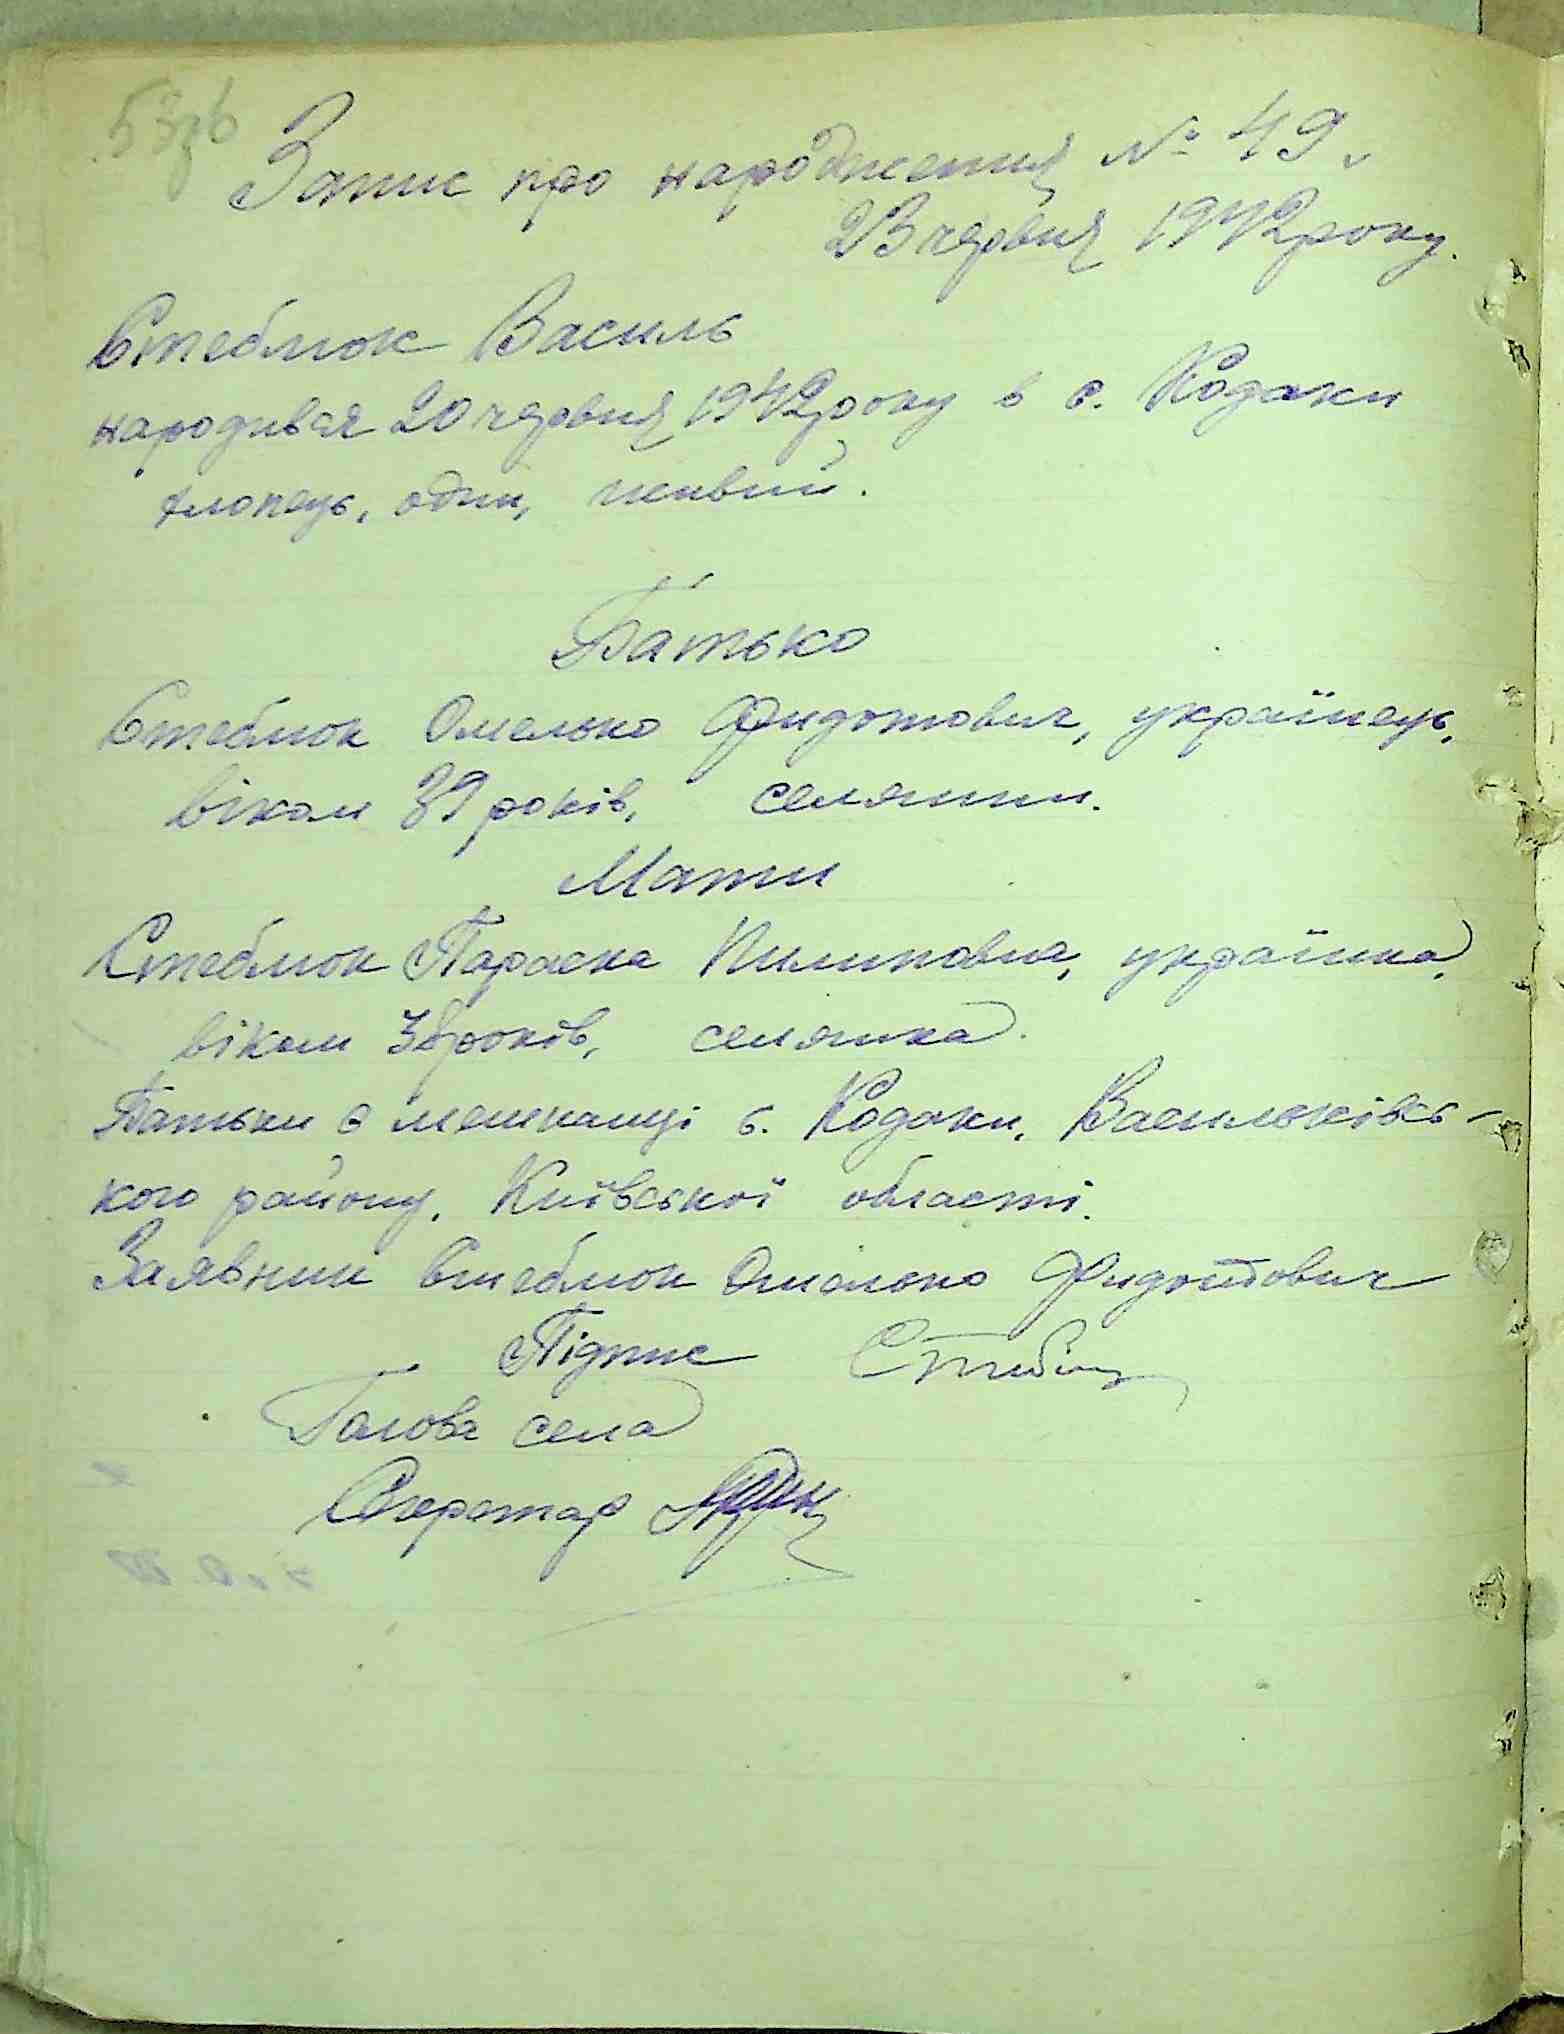 Запис про народження № 49.
23 червня 1942 року.
Стеблюк Василь
народився 20 червня 1942 року в с. Кодаки
хлопець, один, живий.
Батько
Стеблюк Омелько Фидотович, українець,
віком 39 років, селянин.
Мати
Стеблюк Параска Пилиповна, українка,
віком років, селянка.
Батьки є мешканці с. Кодаки, Васильківсь-
кого району, Київської області.
Заявник Стеблюк Омелько Фидотович
Підпис
Голова села
Секретар